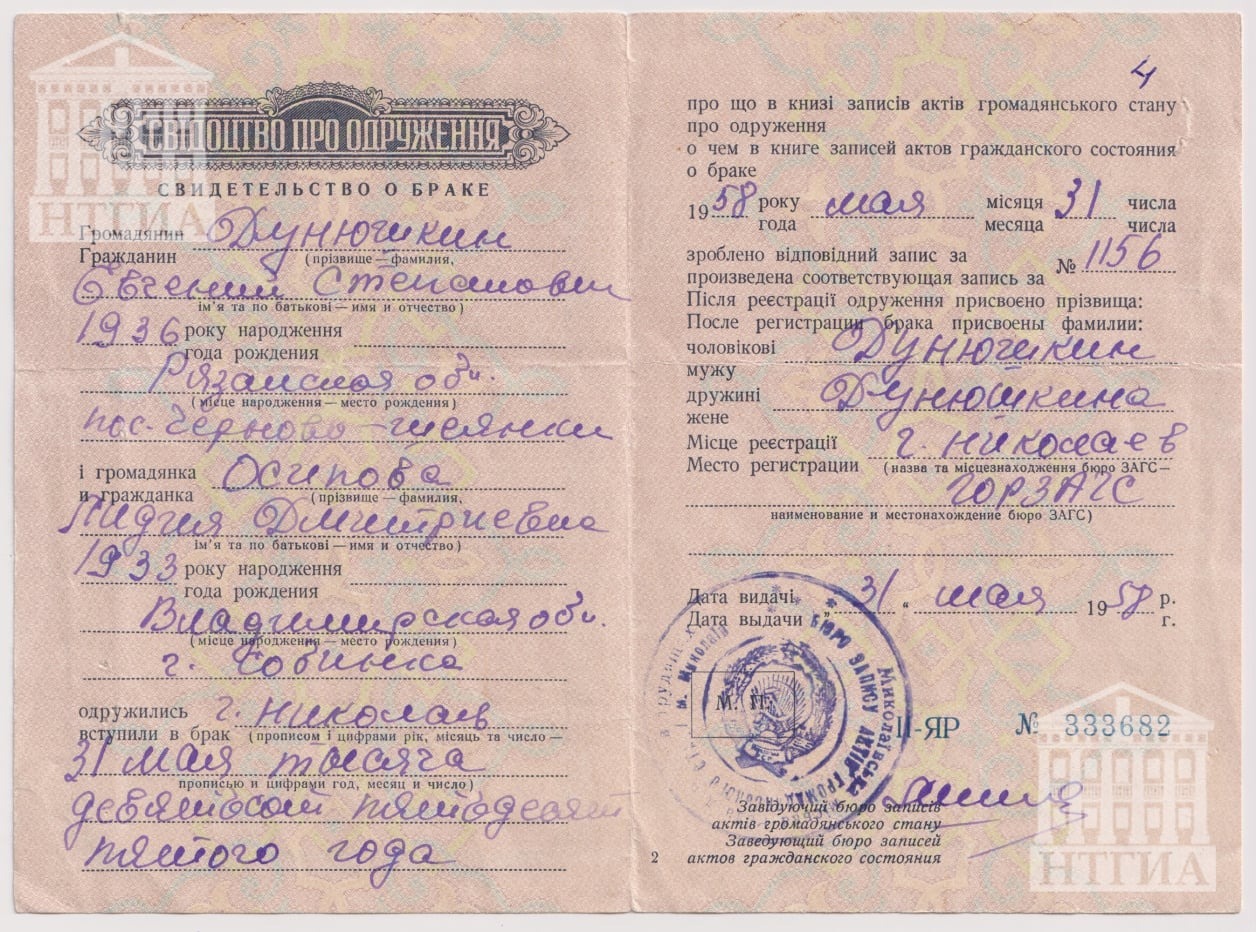 СВІДОЦТВО ПРО ОДРУЖЕННЯ
СВИДЕТЕЛЬСТВО О БРАКЕ
НТГИА
Громадянин Дунюшкин
Гражданин (прізвище — фамилия,
Евгений Степанович
ім’я та по батькові — имя и отчество)
1936 року народження
года рождения
Рязанская обл.
(місце народження — место рождения)
пос. Черново-
і громадянка Осипова
и гражданка (прізвище — фамилия,
Лидия Дмитриевна
ім’я та по батькові — имя и отчество)
1933 року народження
года рождения
Владимирская обл.
(місце народження — место рождения)
г. Собинка
одружились г. Николаев
вступили в брак (прописом і цифрами рік, місяць та число —
31 мая тысяча
прописью и цифрами год, месяц и число)
девятьсот пятьдесят
пятого года
4
про що в книзі записів актів громадянського стану
про одруження
о чем в книге записей актов гражданского состояния
о браке
1958 року мая місяця 31 числа
года месяца числа
зроблено відповідний запис за № 1156
произведена соответствующая запись за
Після реєстрації одруження присвоєно прізвища:
После регистрации брака присвоены фамилии:
чоловікові Дунюшкин
мужу
дружині Дунюшкина
жене
Місце реєстрації г. Николаев
Место регистрации (назва та місцезнаходження бюро ЗАГС—
ГОРЗАГС
наименование и местонахождение бюро ЗАГС)
Дата видачі „31“ мая 1958 р.
Дата выдачи г.
БЮРО ЗАПИСУ АКТІВ ГРОМАД
м. Миколаїв
М. П.
II-ЯР № 333682
Завідуючий бюро записів
актів громадянського стану
Заведующий бюро записей
2 актов гражданского состояния
НТГИА